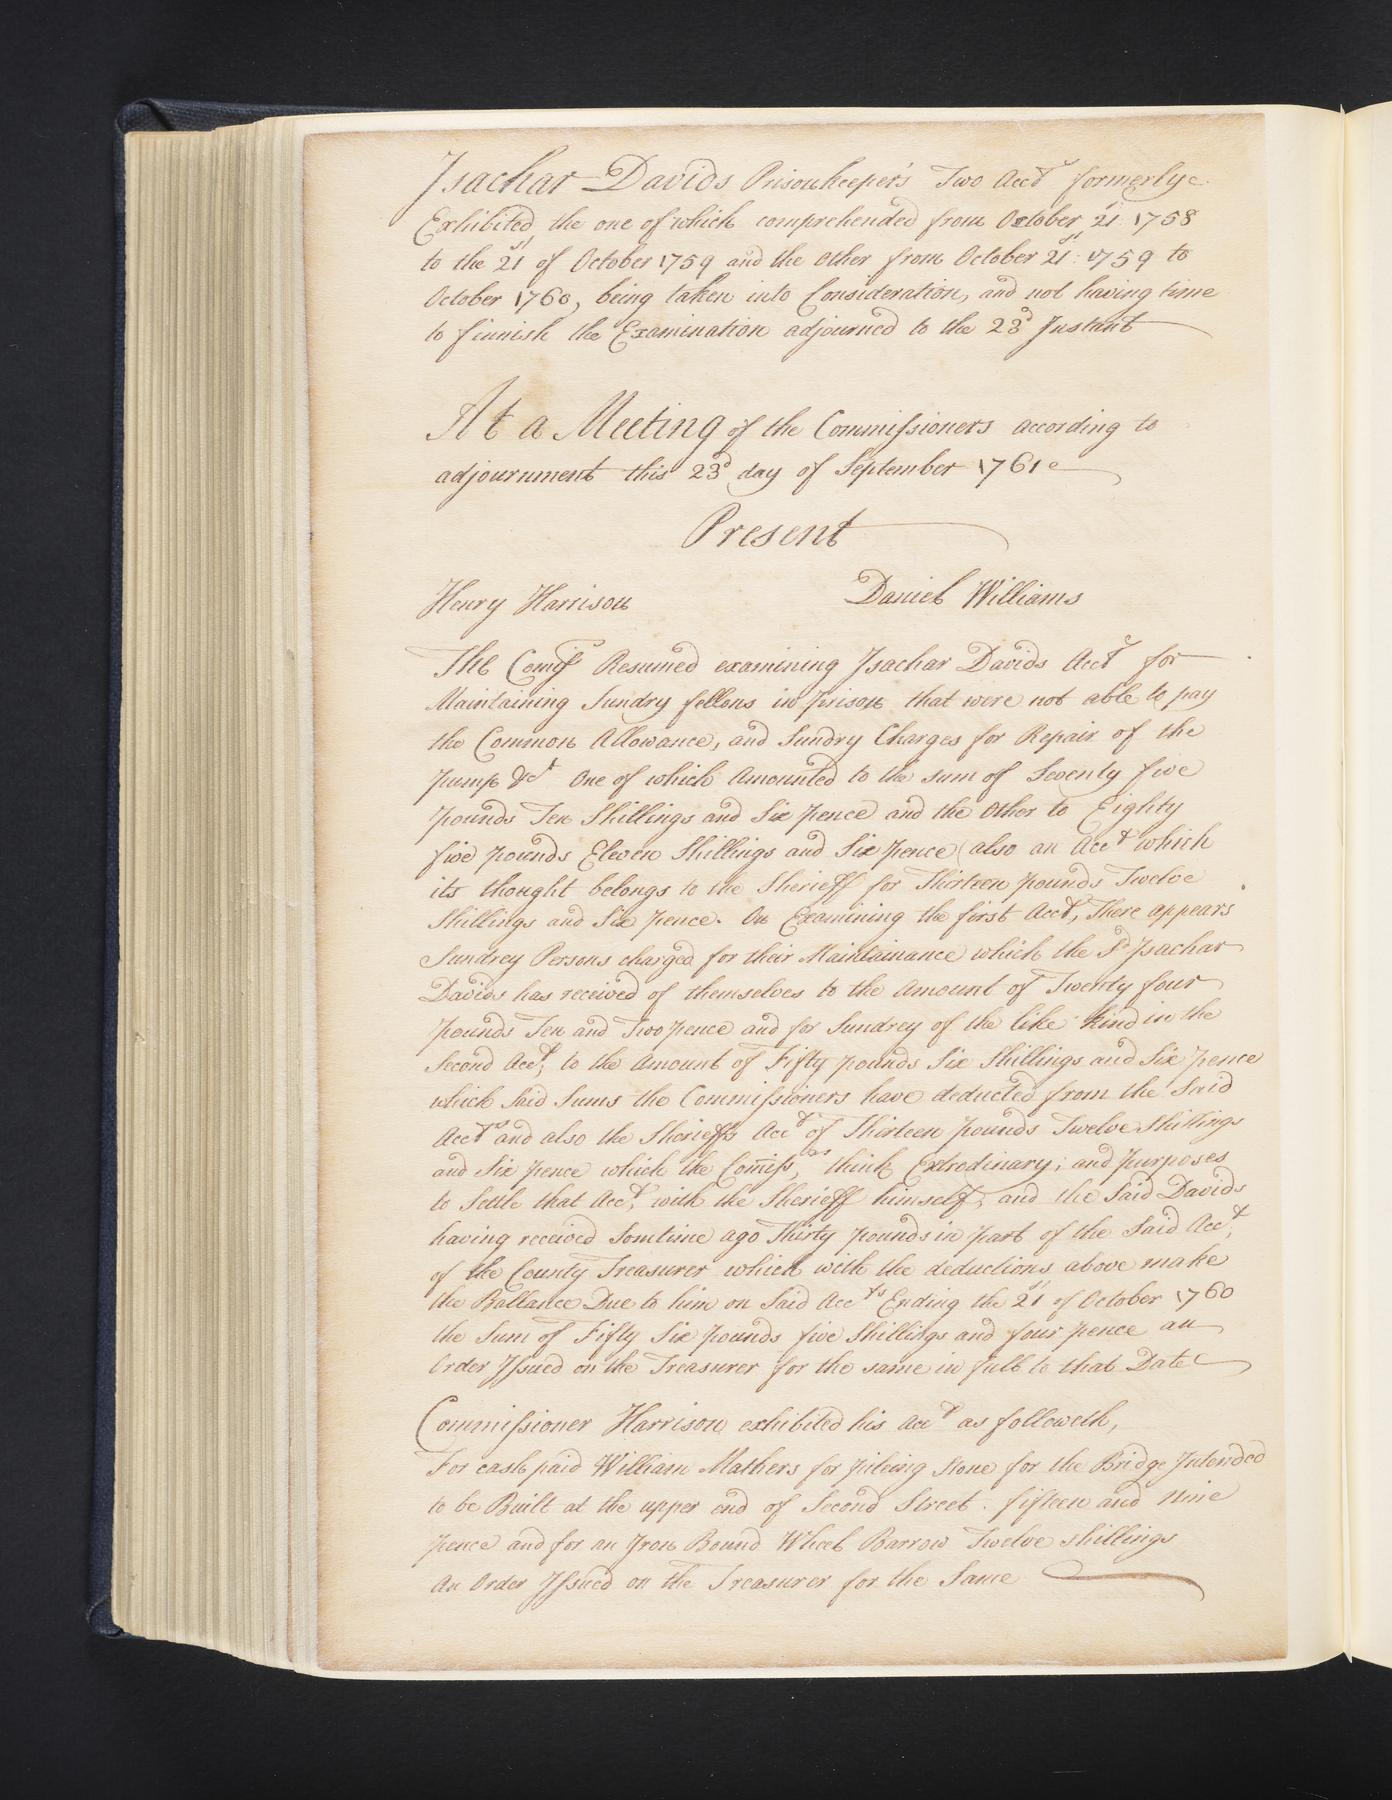 Isachar Davids Prisonkeeper's Two Acct formerly
Exhibited, the one of which comprehended from October 21st 1758
to the 21st of October 1759 and the other from October 21st: 1759 to
October 1760, being taken into Consideration, and not having time
to finnish the Examination adjourned to the 23d Instant
At a Meeting of the Commissioners according to
adjournment this 23d day of September 1761
Present
Henry Harrison Daniel Williams
The Comrs Resumed examining Isachar Davids Acct for
Maintaining Sundry fellons in prison that were not able to pay
the Common Allowance, and Sundry Charges for Repair of the
pump &ct One of which Amounted to the sum of Seventy five
pounds Ten Shillings and Six pence and the other to Eighty
five pounds Eleven Shillings and Six pence (also an Acct which
its thought belongs to the Sherieff for Thirteen pounds Twelve
Shillings and Six pence. On Examining the first Acct, There appears
Sundrey Persons charged for their Maintainance which the Sd Isachar
Davids has received of themselves to the Amount of Twenty four
pounds Ten and Two pence and for Sundrey of the like kind in the
Second Acct, to the Amount of Fifty pounds Six Shillings and Six pence
which Said Sums the Commissioners have deducted from the Said
Accts and also the Sherieffs Acct of Thirteen pounds Twelve Shillings
and Six pence which the Comiss,rs think Extrodinary; and purposes
to Settle that Acct, with the Sherieff himself, and the Said Davids
having received Somtime ago Thirty pounds in part of the Said Acct,
of the County Treasurer which with the deductions above make
the Ballance Due to him on Said Accts Ending the 21st of October 1760
the Sum of Fifty Six pounds five Shillings and four pence an
Order Issued on the Treasurer for the same in full to that Date
Commissioner Harrison exhibited his Acct as followeth,
For cash paid William Mathers for pileing Stone for the Bridge Intended
to be Built at the upper end of Second Street. fifteen and Nine
pence and for an Iron Bound Wheel Barrow Twelve shillings
An Order Issued on the Treasurer for the Same